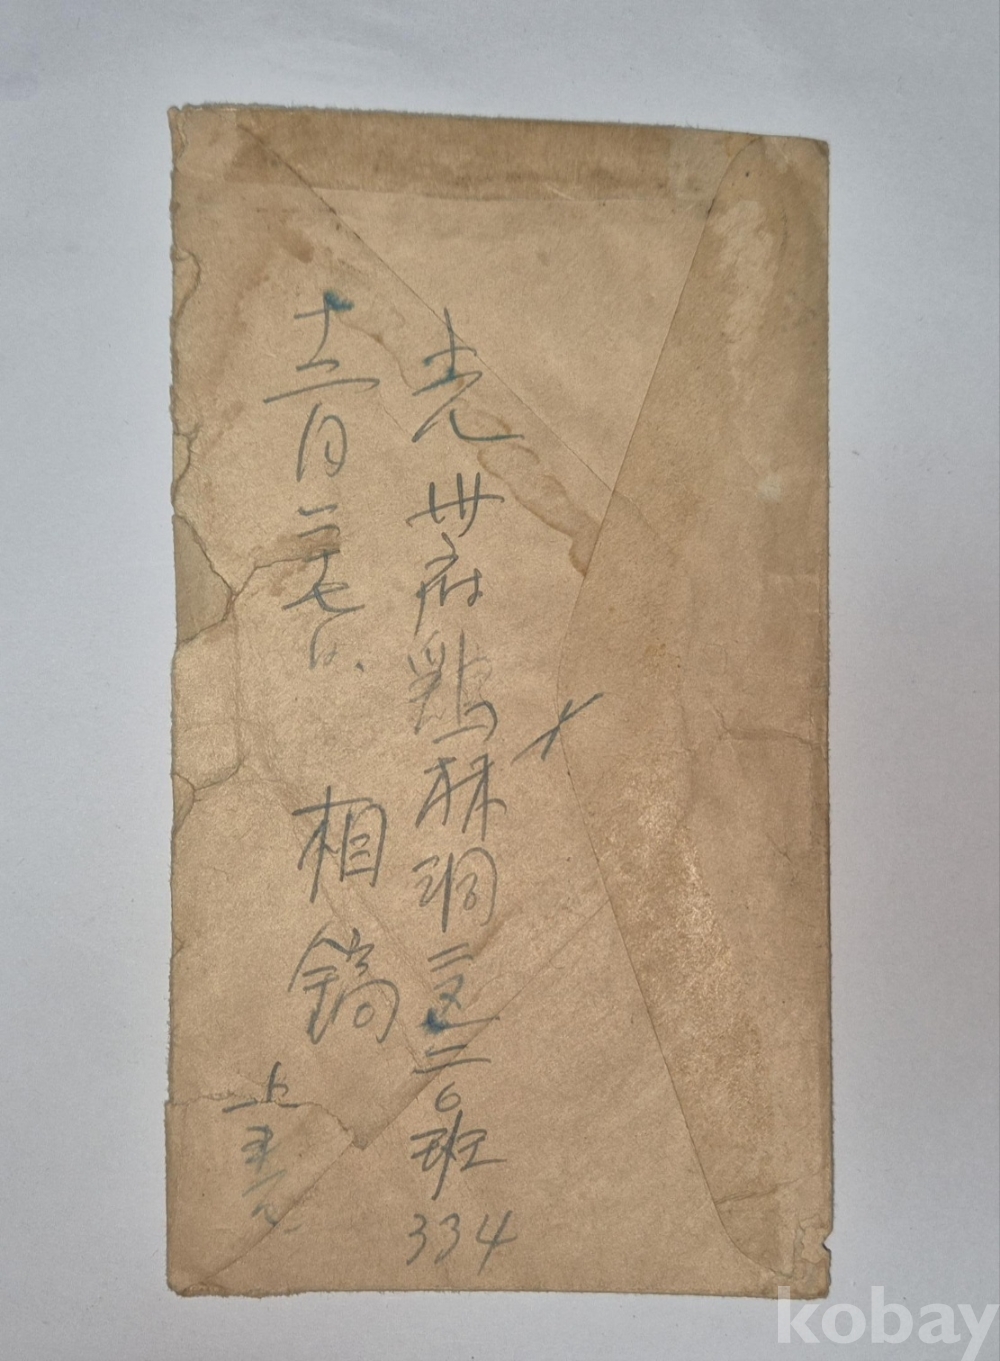 光州府鷄林洞二区二〇班 334
十二月二十七日 相鎬
上書
kobay